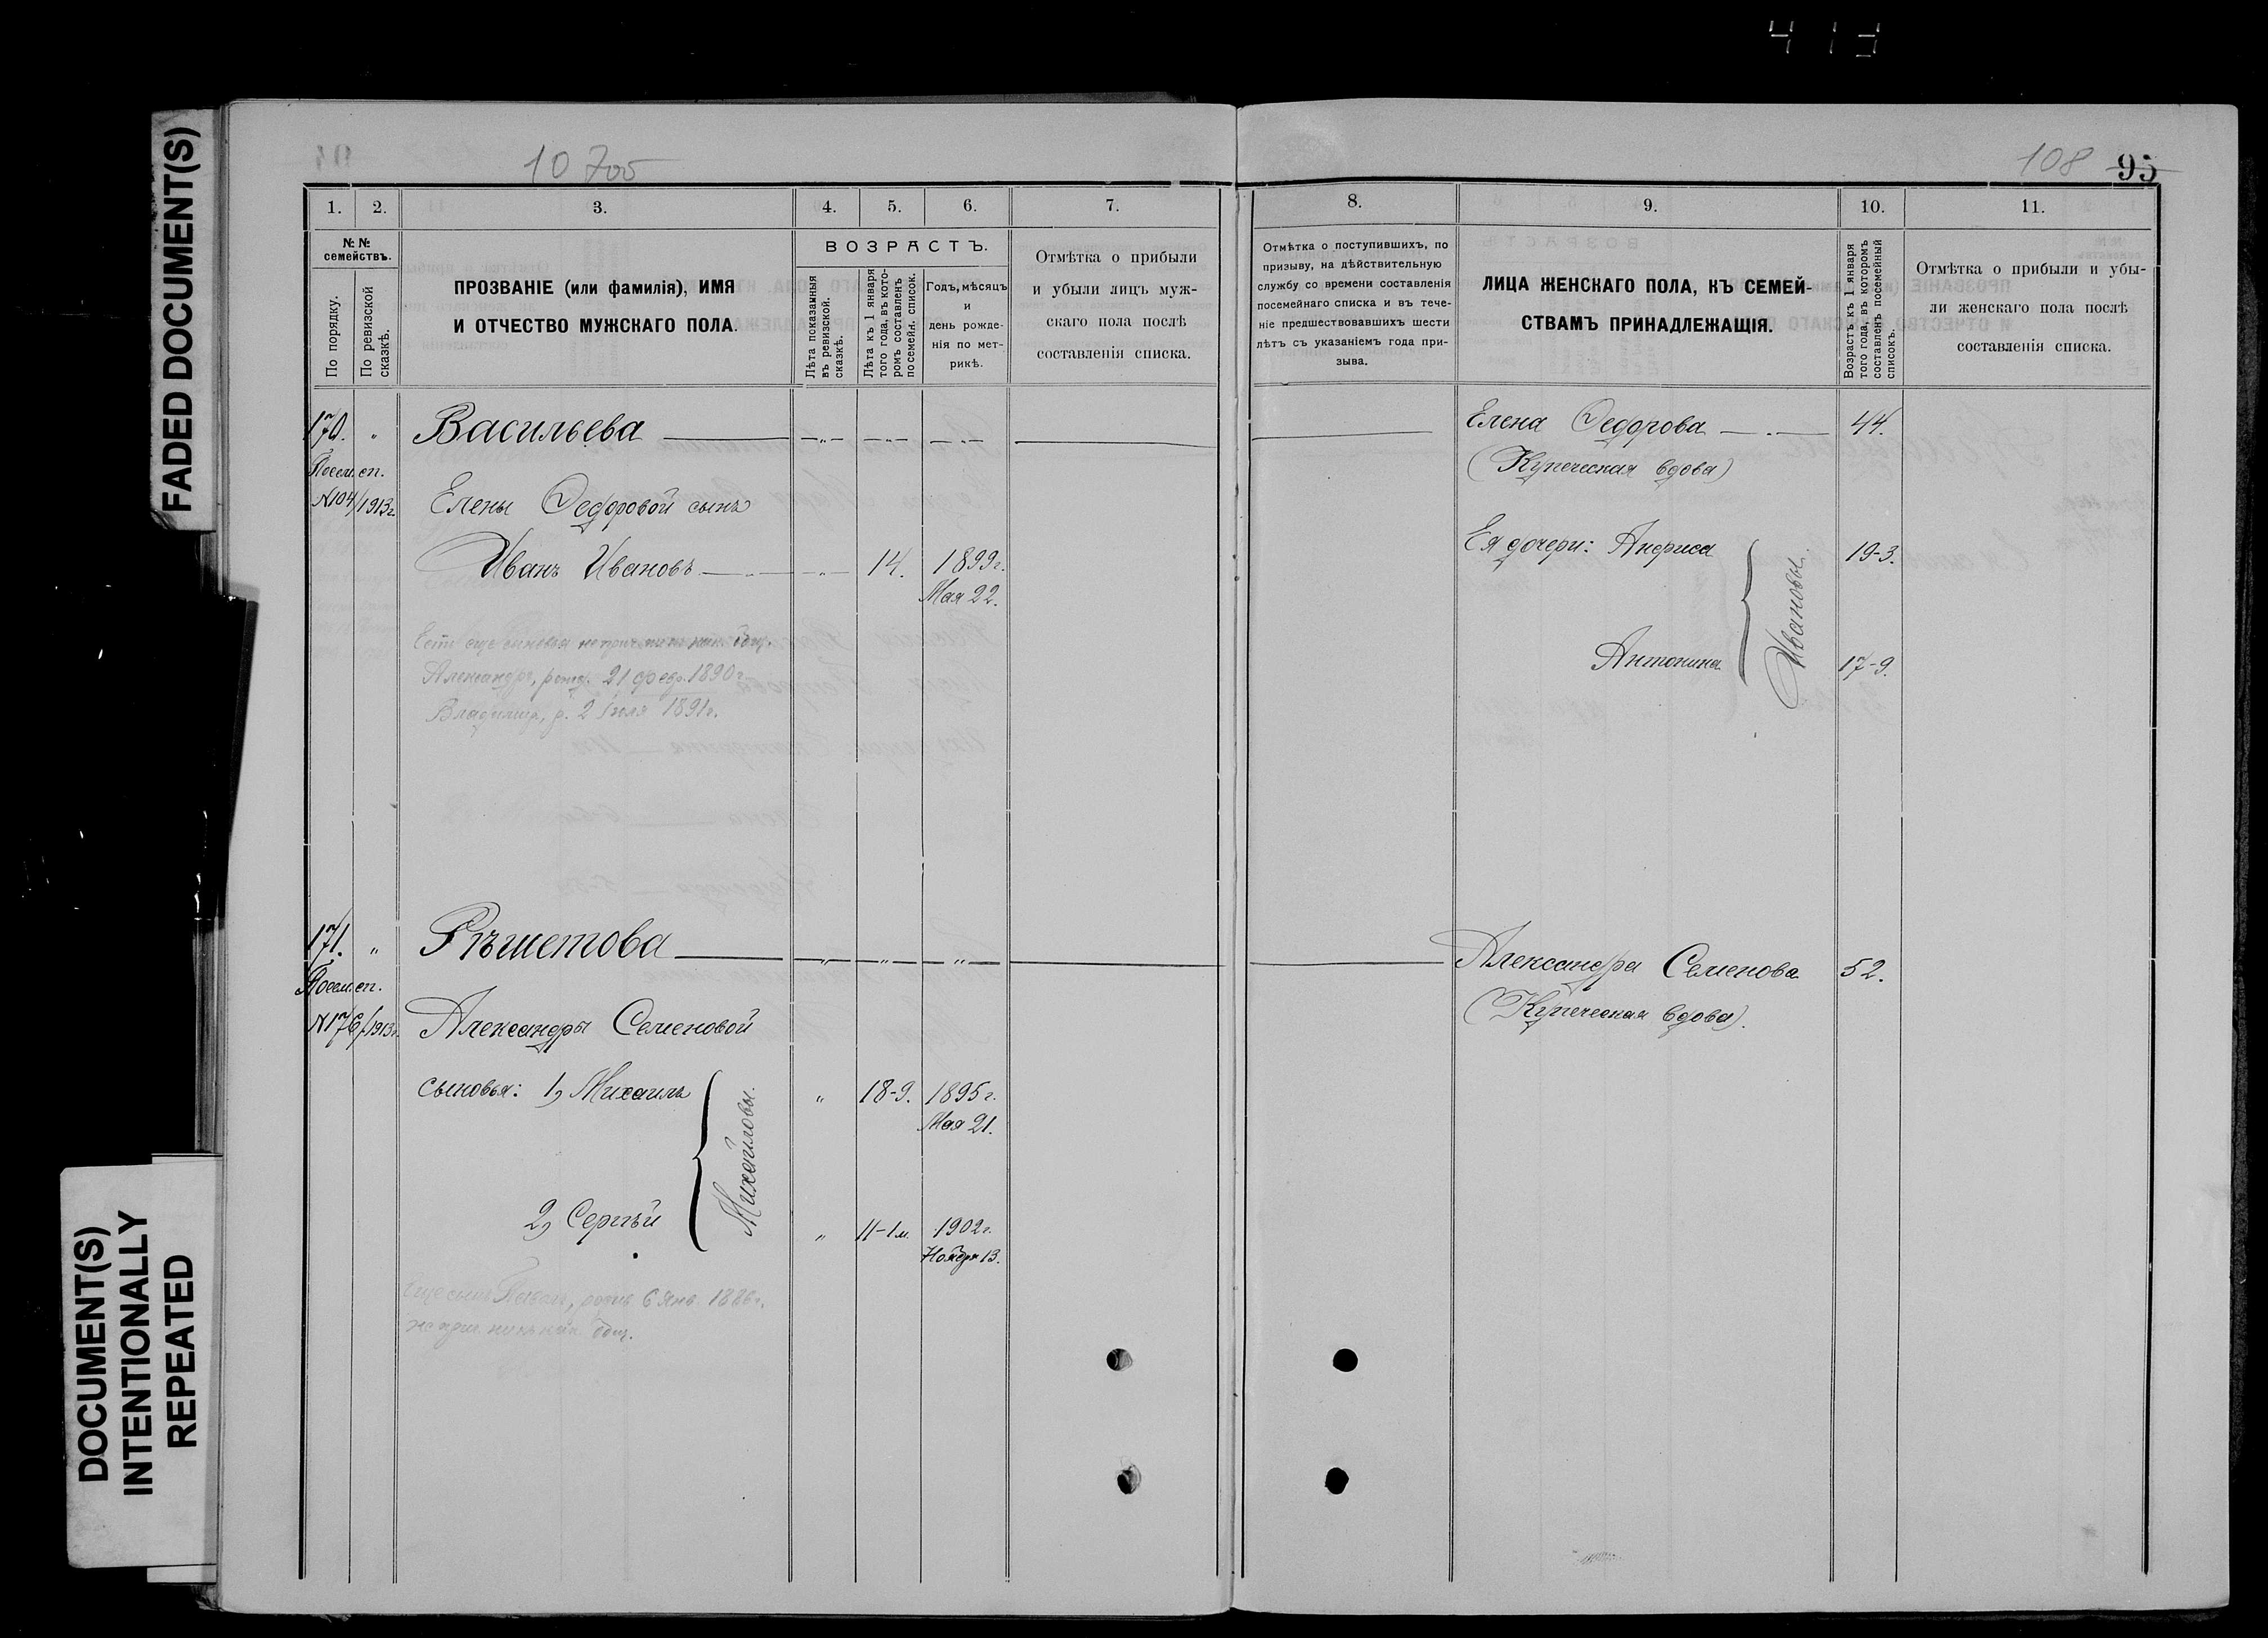 413
FADED DOCUMENT(S)
DOCUMENT(S)
INTENTIONALLY
REPEATED
108 95
1. 2. 3. 4. 5. 6. 7.
№ №
семействъ.
По порядку.
По ревизской
сказкѣ.
ПРОЗВАНІЕ (или фамилія), ИМЯ
И ОТЧЕСТВО МУЖСКАГО ПОЛА.
ВОЗРАСТЪ.
Лѣта показанныя
въ ревизской.
сказкѣ.
Лѣта къ 1 января
того года, въ кото-
ромъ составленъ
посемейн. список.
Годъ, мѣсяцъ
и
день рожде-
нія по мет-
рикѣ.
Отмѣтка о прибыли
и убыли лицъ муж-
скаго пола послѣ
составленія списка.
170. „ Васильева
Посем. сп.
№104/1913г. Елены Ѳедоровой сынъ
Иванъ Ивановъ „ 14. 1899г.
Мая 22.
Александръ, рожд. 21 февр. 1890г.
Владиміръ, р. 2 Іюля 1891г.
171. „ Рѣшетова „ „ „
Посем. сп.
№176/1913г. Александры Семеновой
сыновья: 1, Михаилъ „ 18-9. 1895г.
Мая 21.
Михайловы.
2, Сергѣй „ 11-1м. 1902г.
Ноября 13.
Еще сынъ Павелъ, родив. 6 Янв. 1886г.
8. 9. 10. 11.
Отмѣтка о поступившихъ, по
призыву, на дѣйствительную
службу со времени составленія
посемейнаго списка и въ тече-
ніе предшествовавшихъ шести
лѣтъ съ указаніемъ года при-
зыва.
ЛИЦА ЖЕНСКАГО ПОЛА, КЪ СЕМЕЙ-
СТВАМЪ ПРИНАДЛЕЖАЩІЯ.
Возрастъ къ 1 января
того года, въ которомъ
составленъ посемейный
списокъ.
Отмѣтка о прибыли и убы-
ли женскаго пола послѣ
составленія списка.
Елена Ѳедорова 44.
(Купеческая вдова)
Ея дочери: Анфиса 19-3.
Ивановы.
Антонина 17-9.
Александра Семенова 52.
(Купеческая вдова).